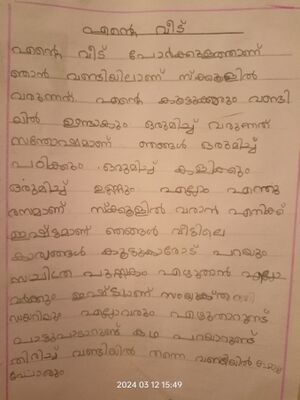 എന്റെ വീട്
എന്റെ വീട് പോർക്കുളത്താണ്
ഞാൻ വണ്ടിയിലാണ് സ്ക്കൂളിൽ
വരുന്നത്. എന്റെ കൂട്ടുക്കാരും വണ്ടി
യിൽ ഉണ്ടാകും ഒരുമിച്ച് വരുന്നത്
സന്തോഷമാണ് ഞങ്ങൾ ഒരുമിച്ച്
പഠിക്കും ഒരുമിച്ച് കളിക്കും
ഒരുമിച്ച് ഉണ്ണും എല്ലാം എന്തു
രസമാണ് സ്ക്കൂളിൽ വരാൻ എനിക്ക്
ഇഷ്ടമാണ് ഞങ്ങൾ വീട്ടിലെ
കാര്യങ്ങൾ കൂട്ടുകാരോട് പറയും
സചിത്ര പുസ്തകം എഴുതാൻ എല്ലാ
വർക്കും ഇഷ്ടമാണ് സംയുക്ത
ഡയറിയും എല്ലാവരും എഴുതാറുണ്ട്
പാട്ടുപാടാറുണ്ട് കഥ പറയാറുണ്ട്
തിരിച്ച് വണ്ടിയിൽ തന്നെ വണ്ടിയിൽ
പോരും
2024 03 12 15:49